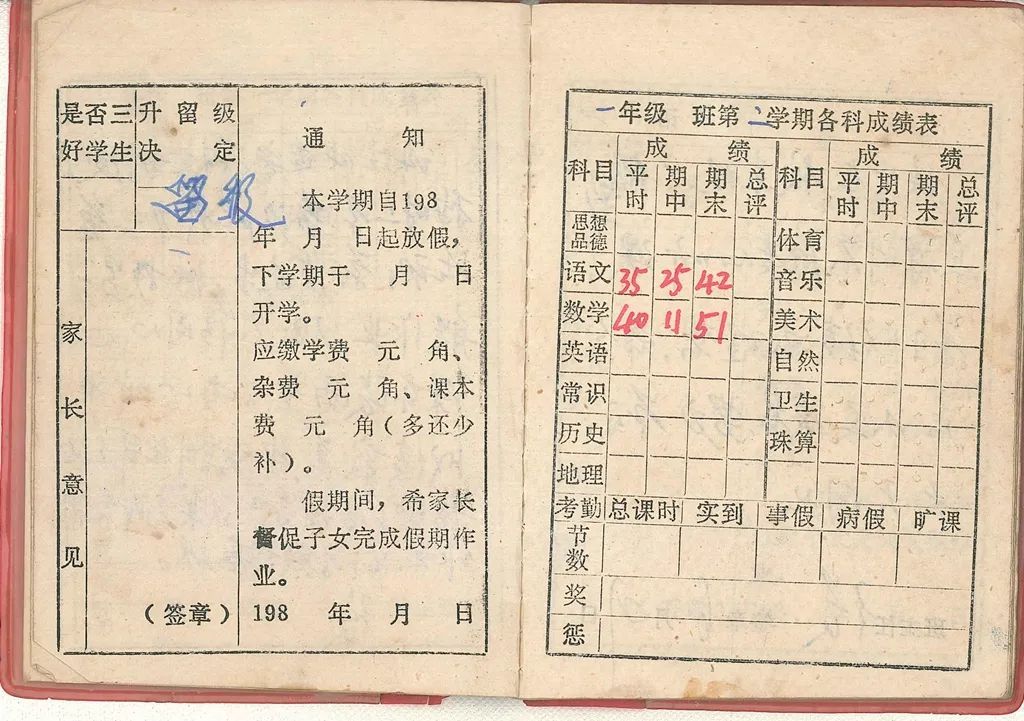 是否三好学生
升留级决定
留级
家长意见
（签章）
通知
本学期自198
年 月 日起放假，
下学期于 月 日
开学。
应缴学费 元 角、
杂费 元 角、课本
费 元 角（多还少
补）。
假期间，希家长
督促子女完成假期作
业。
198 年 月 日
一年级 班第二学期各科成绩表
科目 成绩 科目 成绩
平时 期中 期末 总评 平时 期中 期末 总评
思想品德 体育
语文 35 25 42 音乐
数学 40 11 51 美术
英语 自然
常识 卫生
历史 珠算
地理
考勤 总课时 实到 事假 病假 旷课
节数
奖
惩